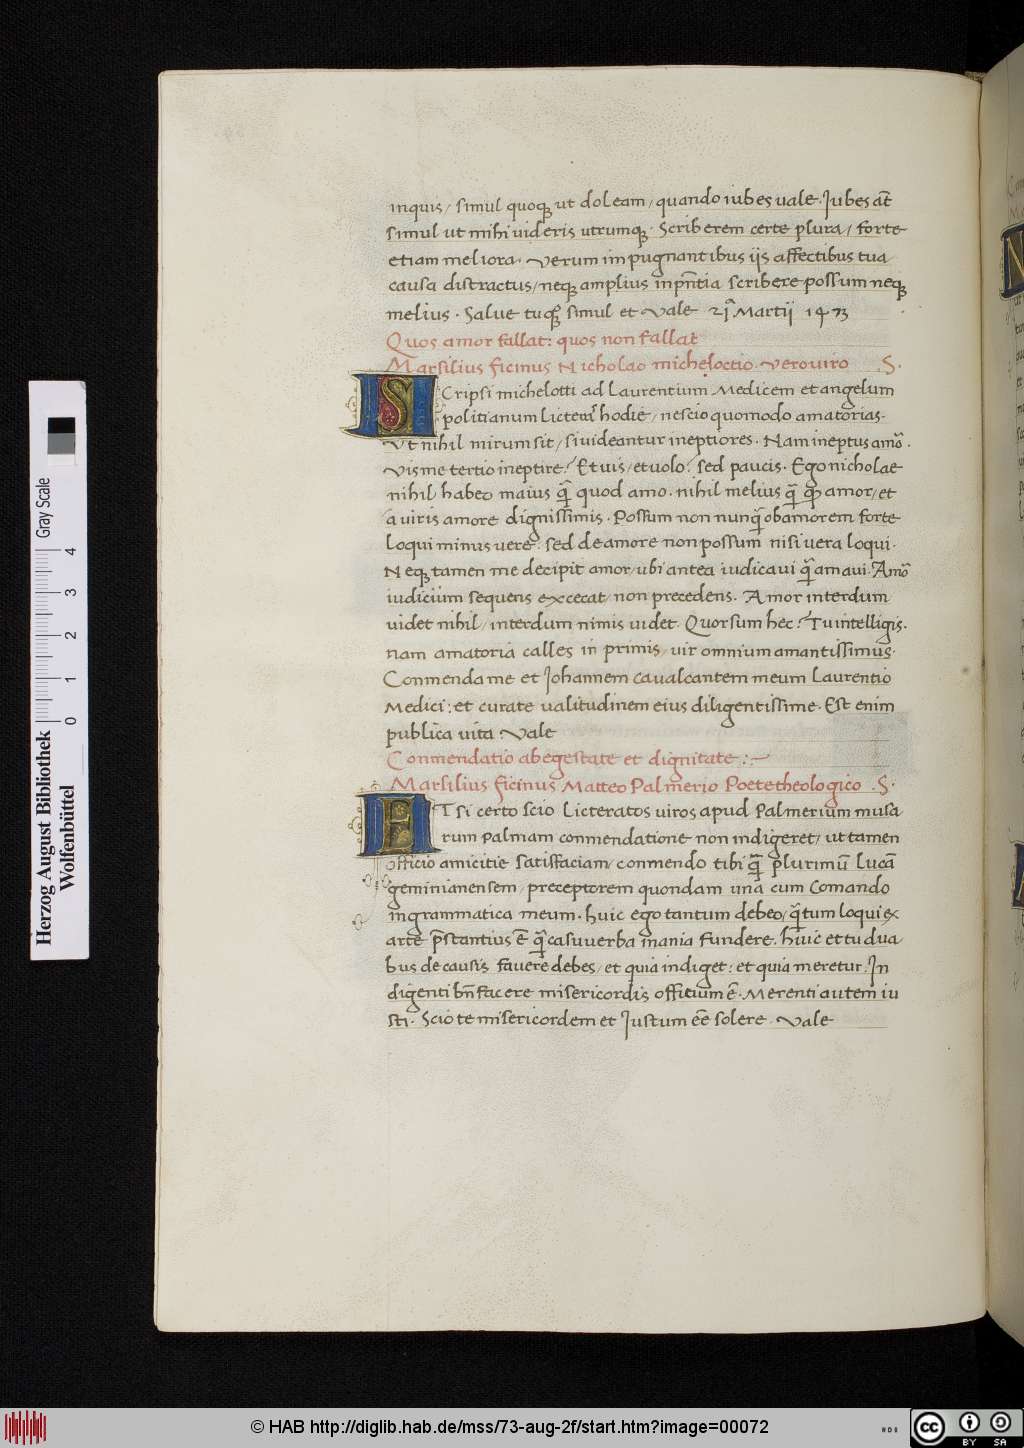 inquis / simul quoqꝫ ut doleam / quando iubes uale . Jubes aūt
simul ut mihi uideris utrumqꝫ . Scriberem certe plura / forte
etiam meliora . Verum impugnantibus iis affectibus tua
causa distractus / neqꝫ amplius inpn̄tia scribere possum neqꝫ
melius . Salue tuqꝫ simul et Vale 21ᵃ Martii 1473
Quos amor fallat : quos non fallat
Marsilius ficinus Nicholao micheloctio Vero uiro .S.
SCripsi michelotti ad Laurentium Medicem et angelum
politianum hodie / nescio quomodo amatorias .
Vt nihil mirum sit / si uideantur ineptiores . Nam ineptus amō .
Vis me tertio ineptire ? Et uis / et uolo . sed paucis . Ego nicholae
nihil habeo maius qᷓ quod amo . nihil melius qᷓ amor / et
a uiris amore dignissimis . Possum non nunqᷓ ob amorem forte
loqui minus uere : sed de amore non possum nisi uera loqui .
Neqꝫ tamen me decipit amor / ubi antea iudicaui qᷓ amaui . Amō
iudicium sequens excecat / non precedens . Amor interdum
uidet nihil / interdum nimis uidet . Quorsum hec ? Tu intelligis .
nam amatoria calles in primis / uir omnium amantissimus .
Conmenda me et Johannem caualcantem meum Laurentio
Medici : et curate ualitudinem eius diligentissime . Est enim
publica uita Vale
Conmendatio ab egestate et dignitate : ~
Marsilius ficinus Matteo Palmerio Poete theologico .S.
ETsi certo scio Licteratos uiros apud Palmerium musa
rum palmam conmendatione non indigeret / ut tamen
officio amicitie satisfaciam / conmendo tibi qᷓ plurimū Lucā
geminianensem / preceptorem quondam una cum Comando
in grammatica meum . huic ego tantum debeo / qᷓtum loqui ex
arte p̄stantius ē qᷓ casu uerba inania fundere . huic et tu dua
bus de causis fauere debes / et quia indiget : et quia meretur . In
digenti bn̄facere misericordis officium ē . Merenti autem iu
sti . Scio te misericordem et Justum eē solere . Vale
Herzog August Bibliothek
Wolfenbüttel
0 1 2 3 4
Gray Scale
© HAB http://diglib.hab.de/mss/73-aug-2f/start.htm?image=00072
cc BY SA